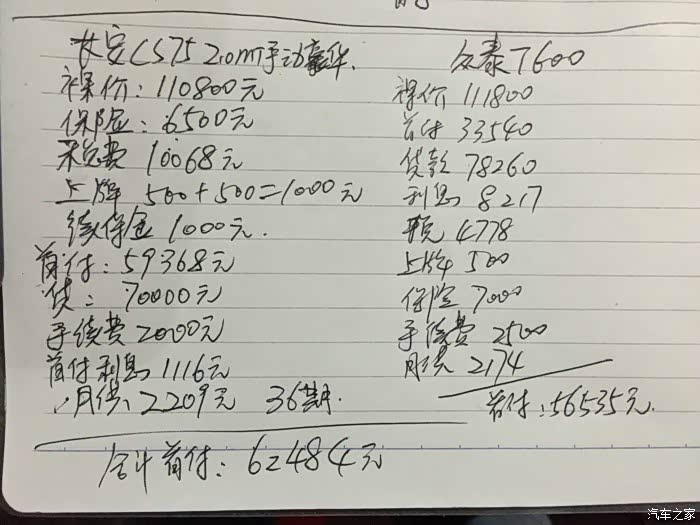 长安CS75 2.0MT手动豪华.
裸价：110800元
保险：6500元
购置费 10068元
上牌 500+500=1000元
续保金 1000元.
首付：59368元
贷：70000元
手续费 2000元
首付利息 1116元
月供：2209元 36期.
合计首付：62484元
众泰T600
裸价 111800
首付 33540
贷款 78260
利息 8217
税 4778
上牌 500
保险 7000
手续费 2500
月供 2174
首付：56535元.
汽车之家